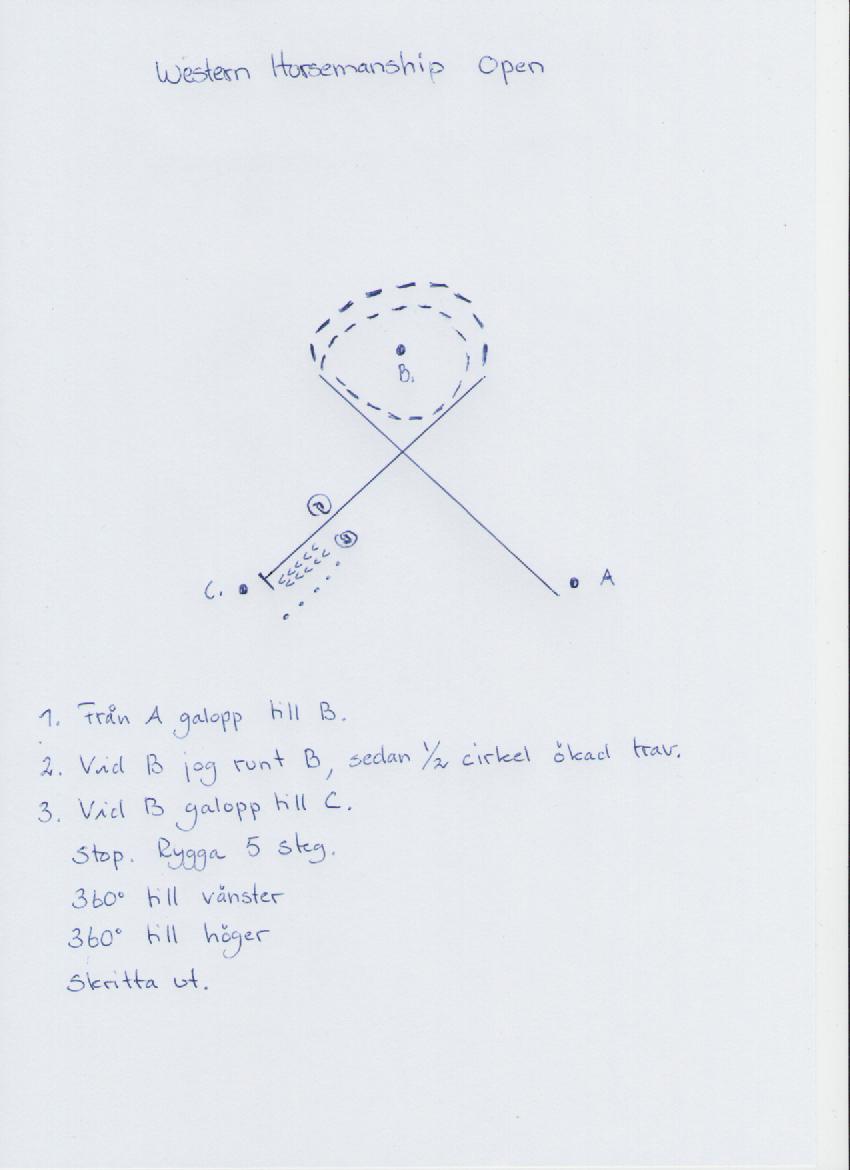 Western Horsemanship Open
B.
C.
A
1. Från A galopp till B.
2. Vid B jog runt B, sedan 1/2 cirkel ökad trav.
3. Vid B galopp till C.
Stop. Rygga 5 steg.
360° till vänster
360° till höger
Skritta ut.